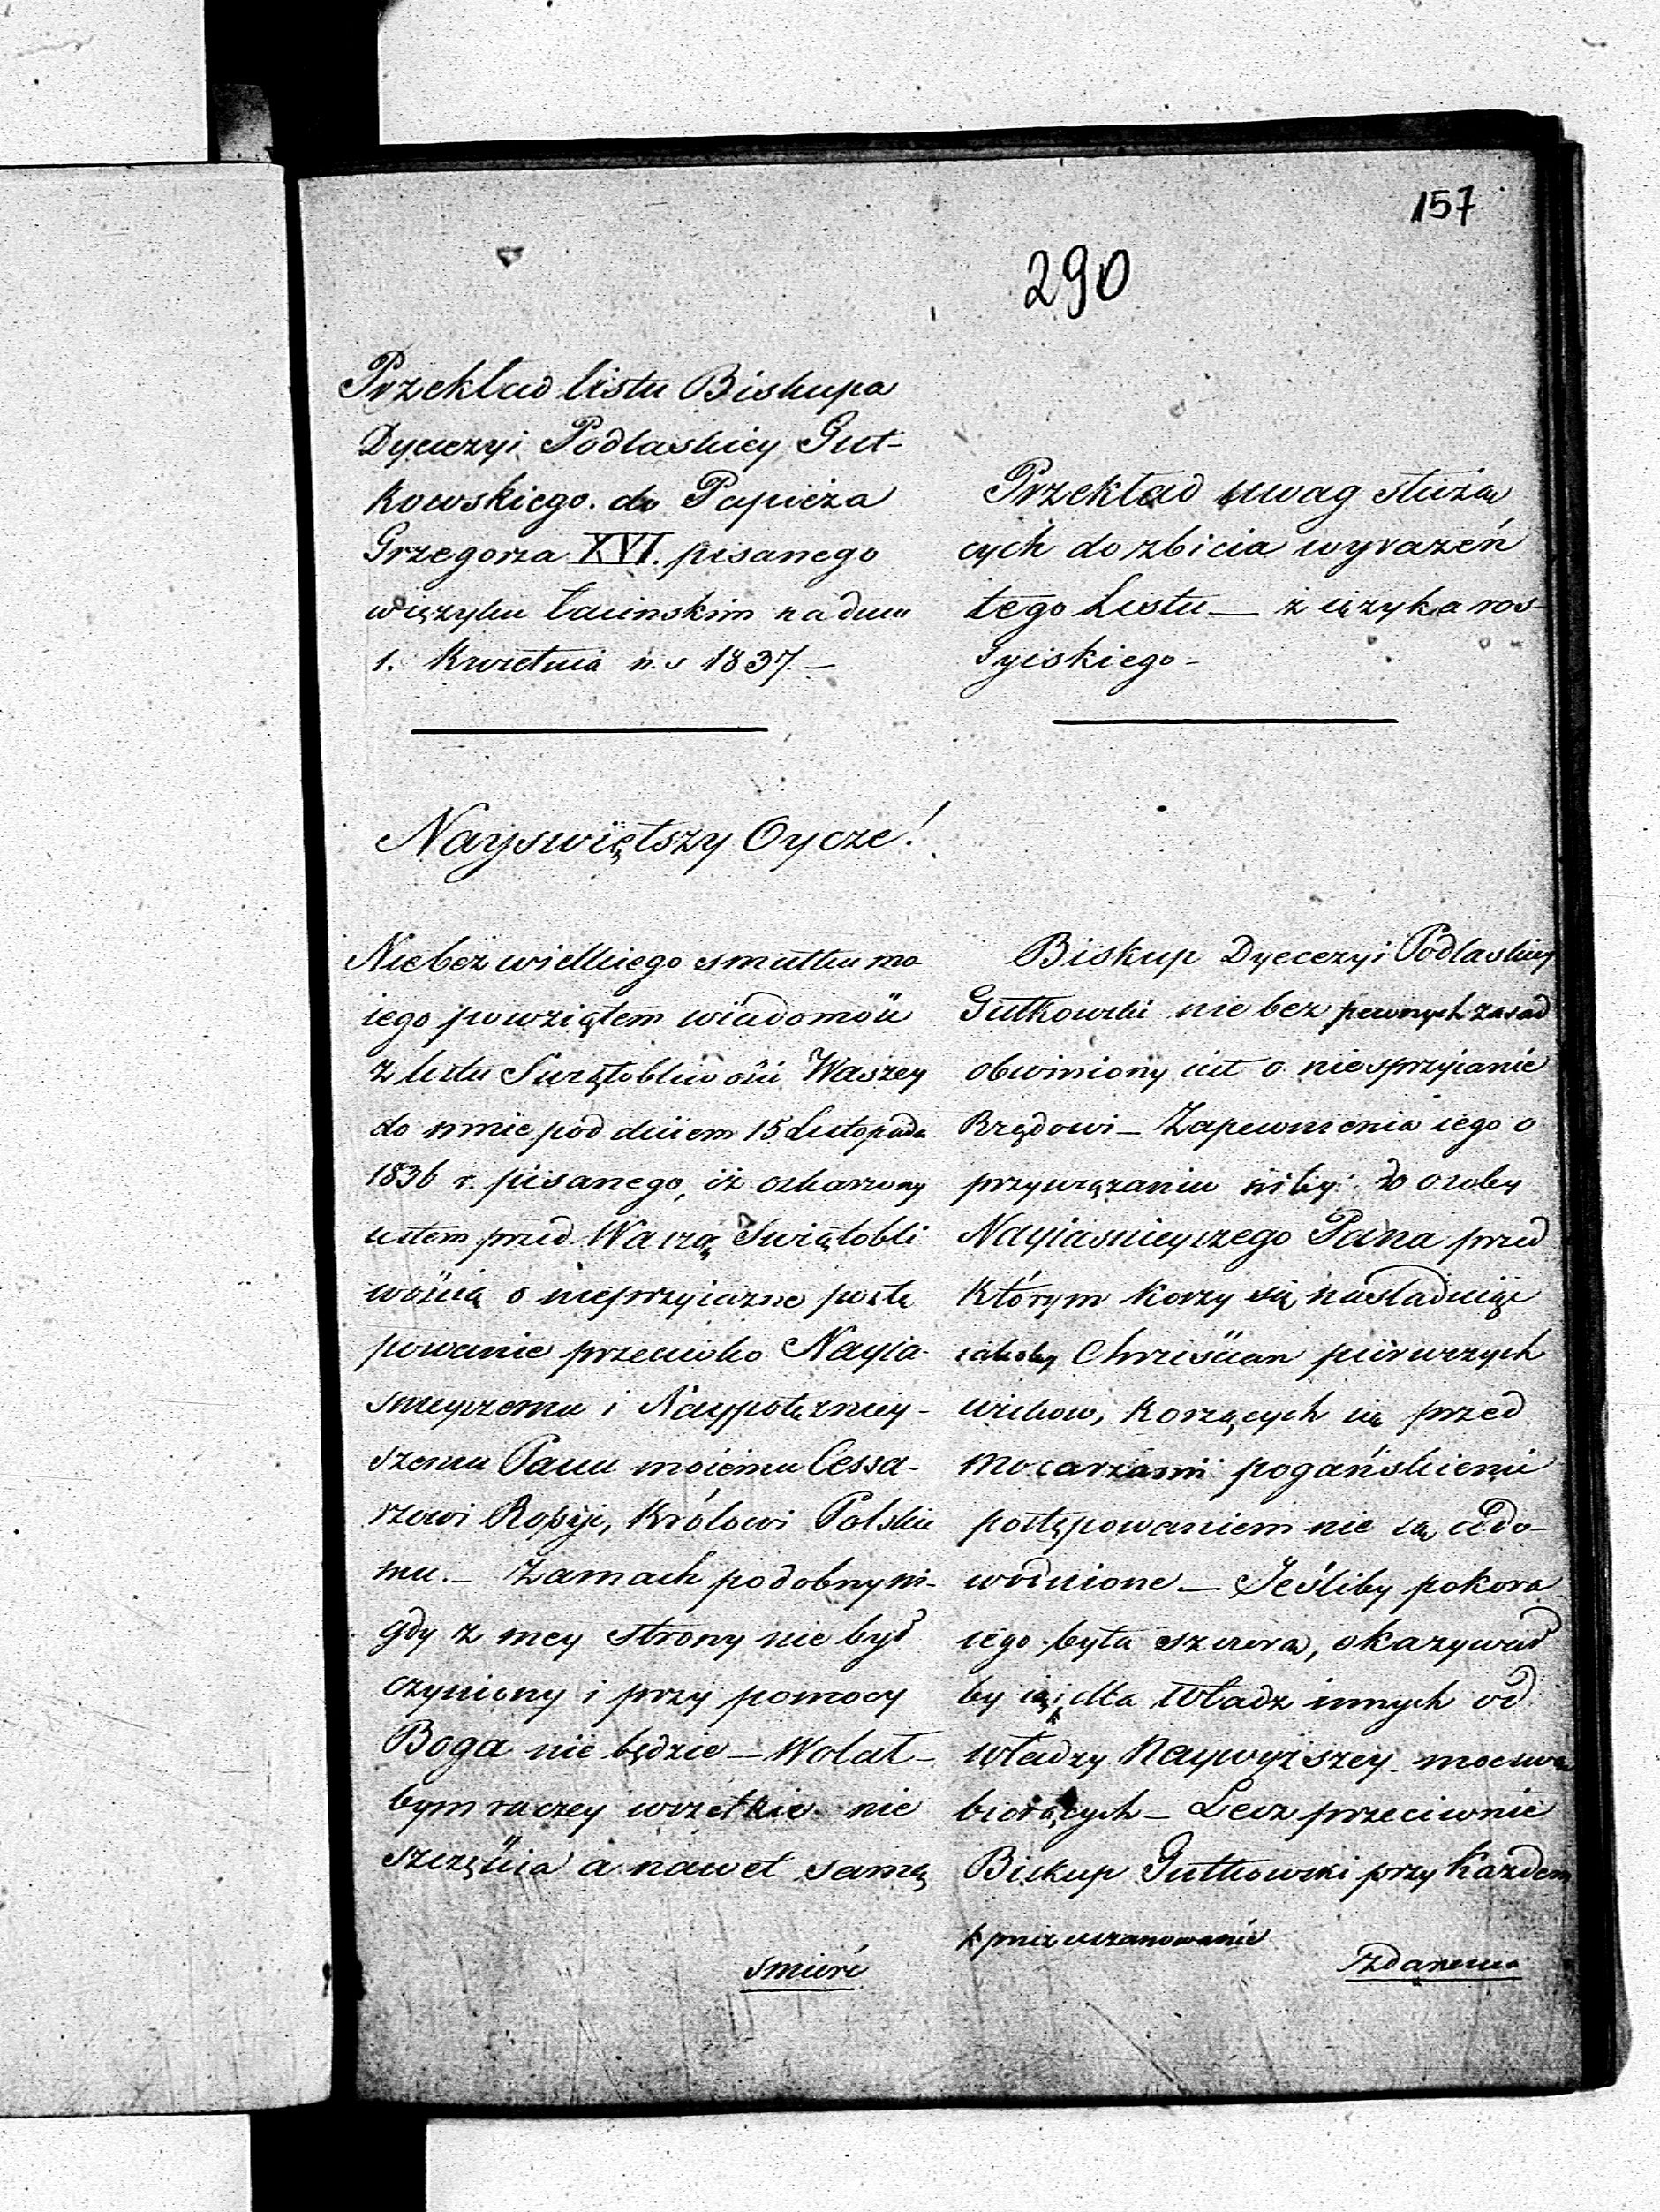 157
290
Przekład listu Biskupa
Dyecezyi Podlaskiey Gut-
kowskiego do Papieża
Grzegorza XVI. pisanego
w ięzyku łacinskim na dniu
1. Kwietnia n. s 1837. —
Nayswiętszy Oycze!
Nie bez wielkiego smutku mo
iego powziąłem wiadomość
z listu Swiątobliwości Waszey
do mnie pod dniem 15 Listopada
1836 r. pisanego, iż oskarżony
iestem przed Waszą Swiątobli
wością o nieprzyiazne postę
powanie przeciwko Nayia-
snieyszemu i Naypotężniey-
szemu Panu moiemu Cessa-
rzowi Rossyi, Królowi Polskie
mu. — Zamach podobny ni-
gdy z mey strony nie był
czyniony i przy pomocy
Boga nie będzie — Wolał-
bym raczey wszelkie nie
szczęścia a nawet samą
smierć
Przekład uwag służą
cych do zbicia wyrażeń
tego Listu — z ięzyka ros-
syiskiego -
Biskup Dyecezyi Podlaskiey
Gutkowski nie bez pewnych zasad
obwiniony iest o niesprzyianie
Rządowi — Zapewnienia iego o
przywiązaniu niby do osoby
Nayiasnieyszego Pana przed
którym korzy się nasladuiąc
iakoby Chrzescian pierwszych
wieków, korzących się przed
mocarzami pogańskiemi
postępowaniem nie są udo-
wodnione — Jeśliby pokora
iego była szczera, okazywał
by ią i dla Władz innych od
władzy Naywyższey moc swą
biorących — Lecz przeciwnie
Biskup Gutkowski przy każdem
przez uszanowanie
zdarzeniu